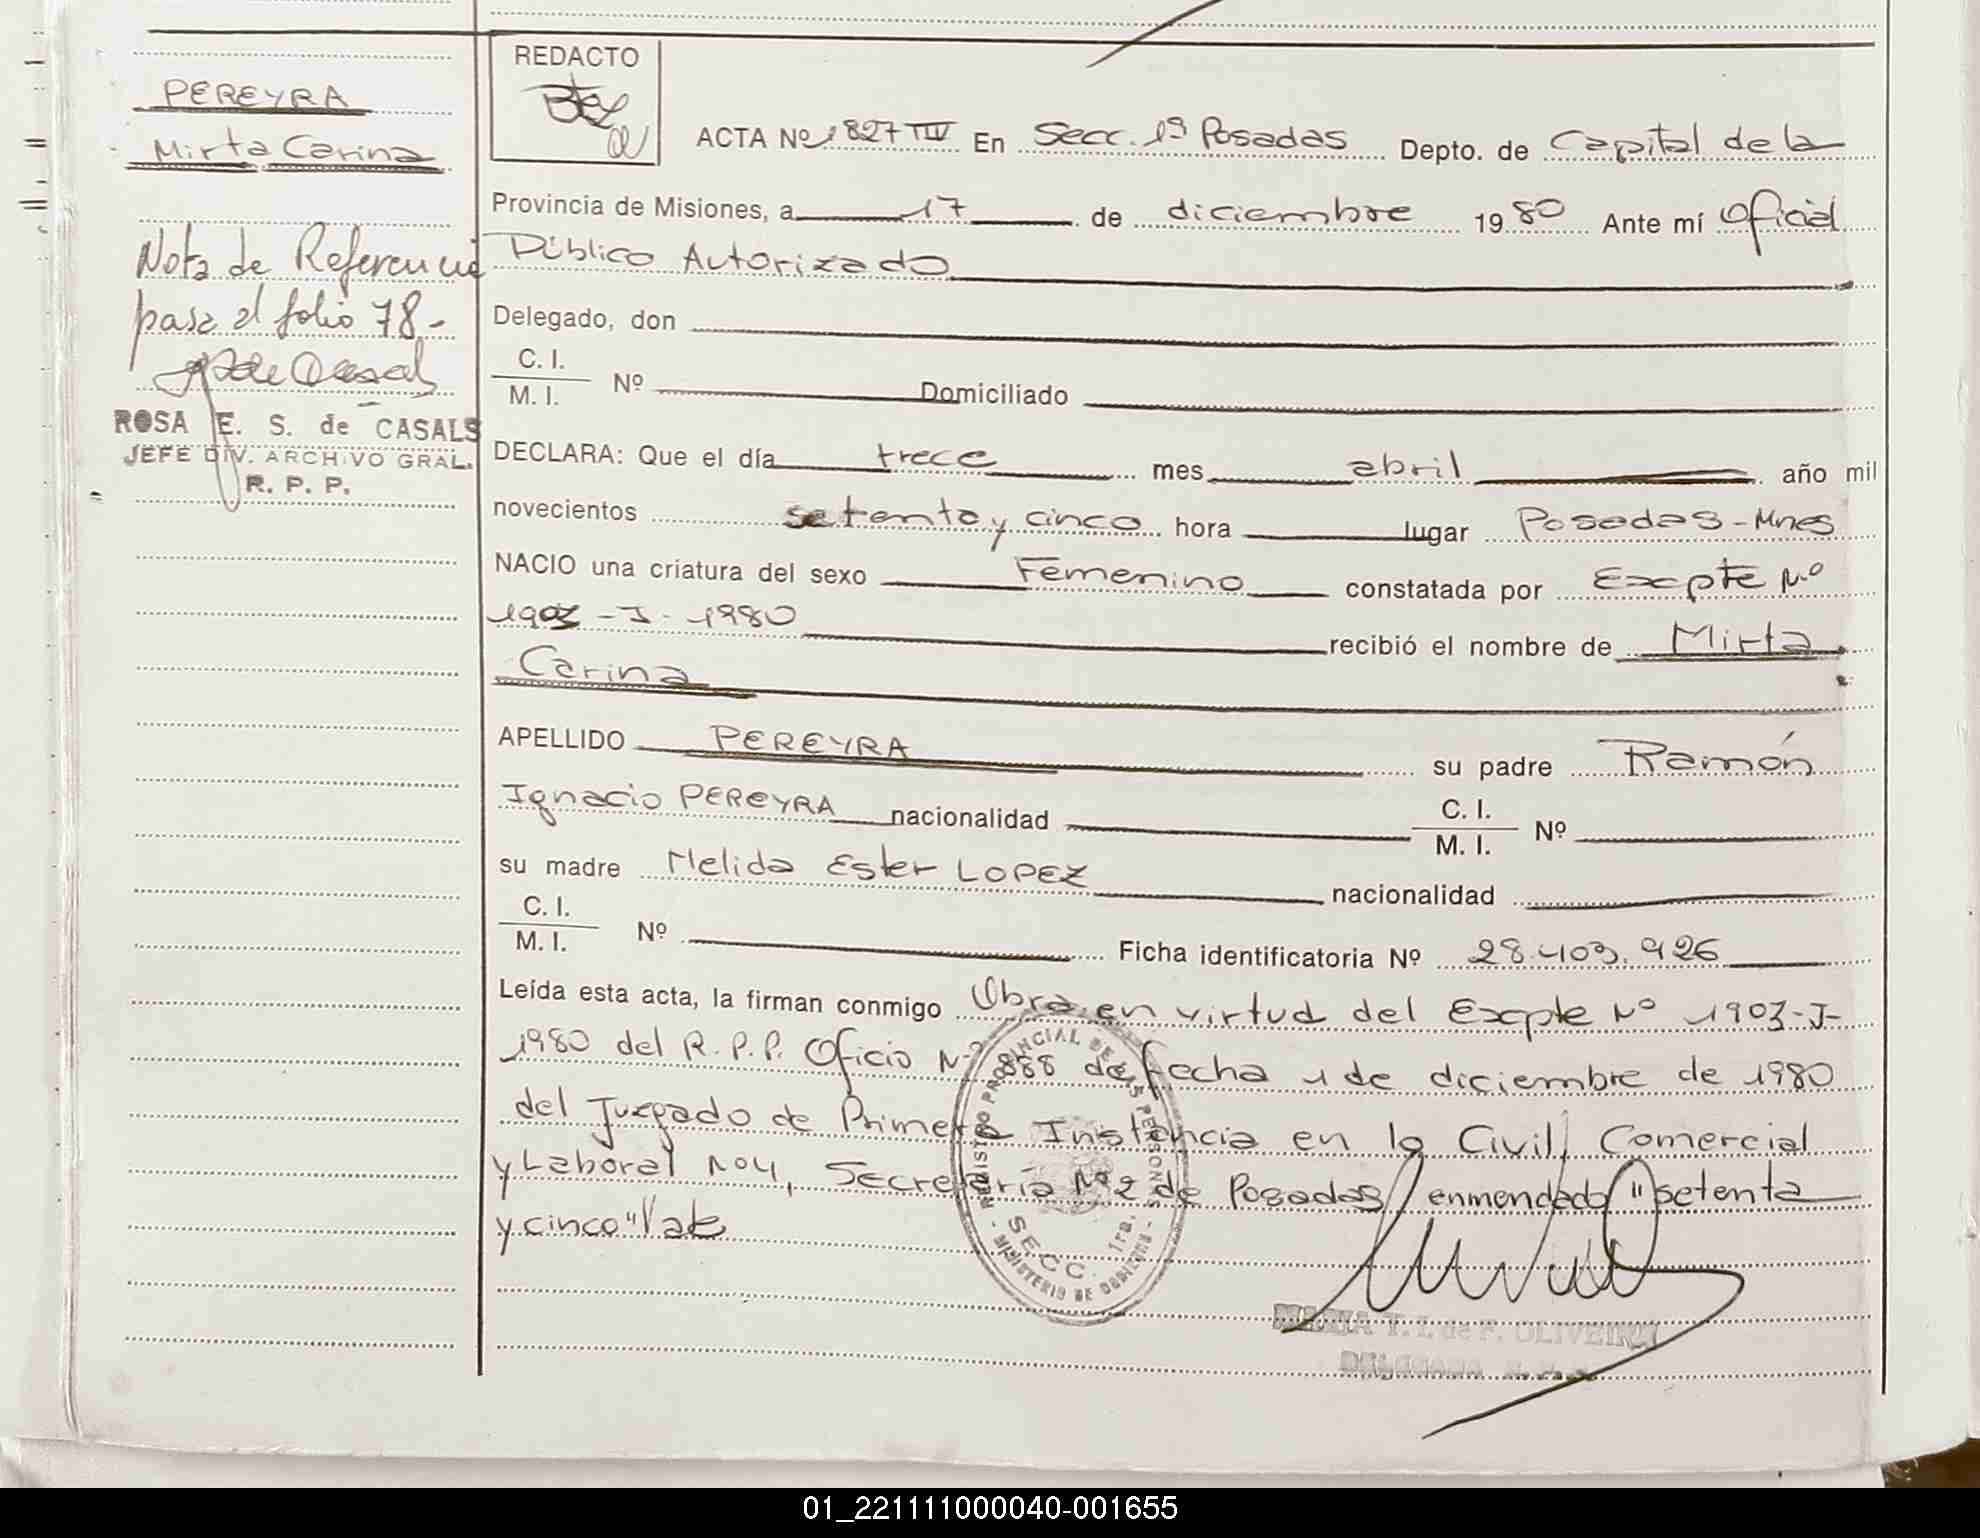 PEREYRA
Mirta Carina
Nota de Referencia
pasa al folio 78-
ROSA E. S. de CASALS
JEFE DIV. ARCHIVO GRAL.
R. P. P.
REDACTO
ACTA Nº 1827 TIV En Secc. 1ª Posadas Depto. de Capital de la
Provincia de Misiones, a 17 de diciembre 1980 Ante mí Oficial
Público Autorizado
Delegado, don
C. I.
M. I. Nº Domiciliado
DECLARA: Que el día trece mes abril año mil
novecientos setenta y cinco hora lugar Posadas-Mnes
NACIO una criatura del sexo Femenino constatada por Excpte Nº
1903-J-1980 recibió el nombre de Mirta
Carina
APELLIDO PEREYRA su padre Ramón
Ignacio PEREYRA nacionalidad C. I.
M. I. Nº
su madre Melida Ester LOPEZ nacionalidad
C. I.
M. I. Nº Ficha identificatoria Nº 28.403.926
Leída esta acta, la firman conmigo Obra en virtud del Excpte Nº 1903-J-
1980 del R.P.P. Oficio Nº 888 de fecha 1 de diciembre de 1980
del Juzgado de Primera Instancia en lo Civil, Comercial
y Laboral Nº4, Secretaría Nº2 de Posadas/ enmendado "setenta
y cinco" Vale
REGISTRO PROVINCIAL DE LAS PERSONAS
SECC. 1ra.
- MINISTERIO DE GOBIERNO -
MARIA T. I. de F. OLIVEIRA
DELEGADA
01_221111000040-001655